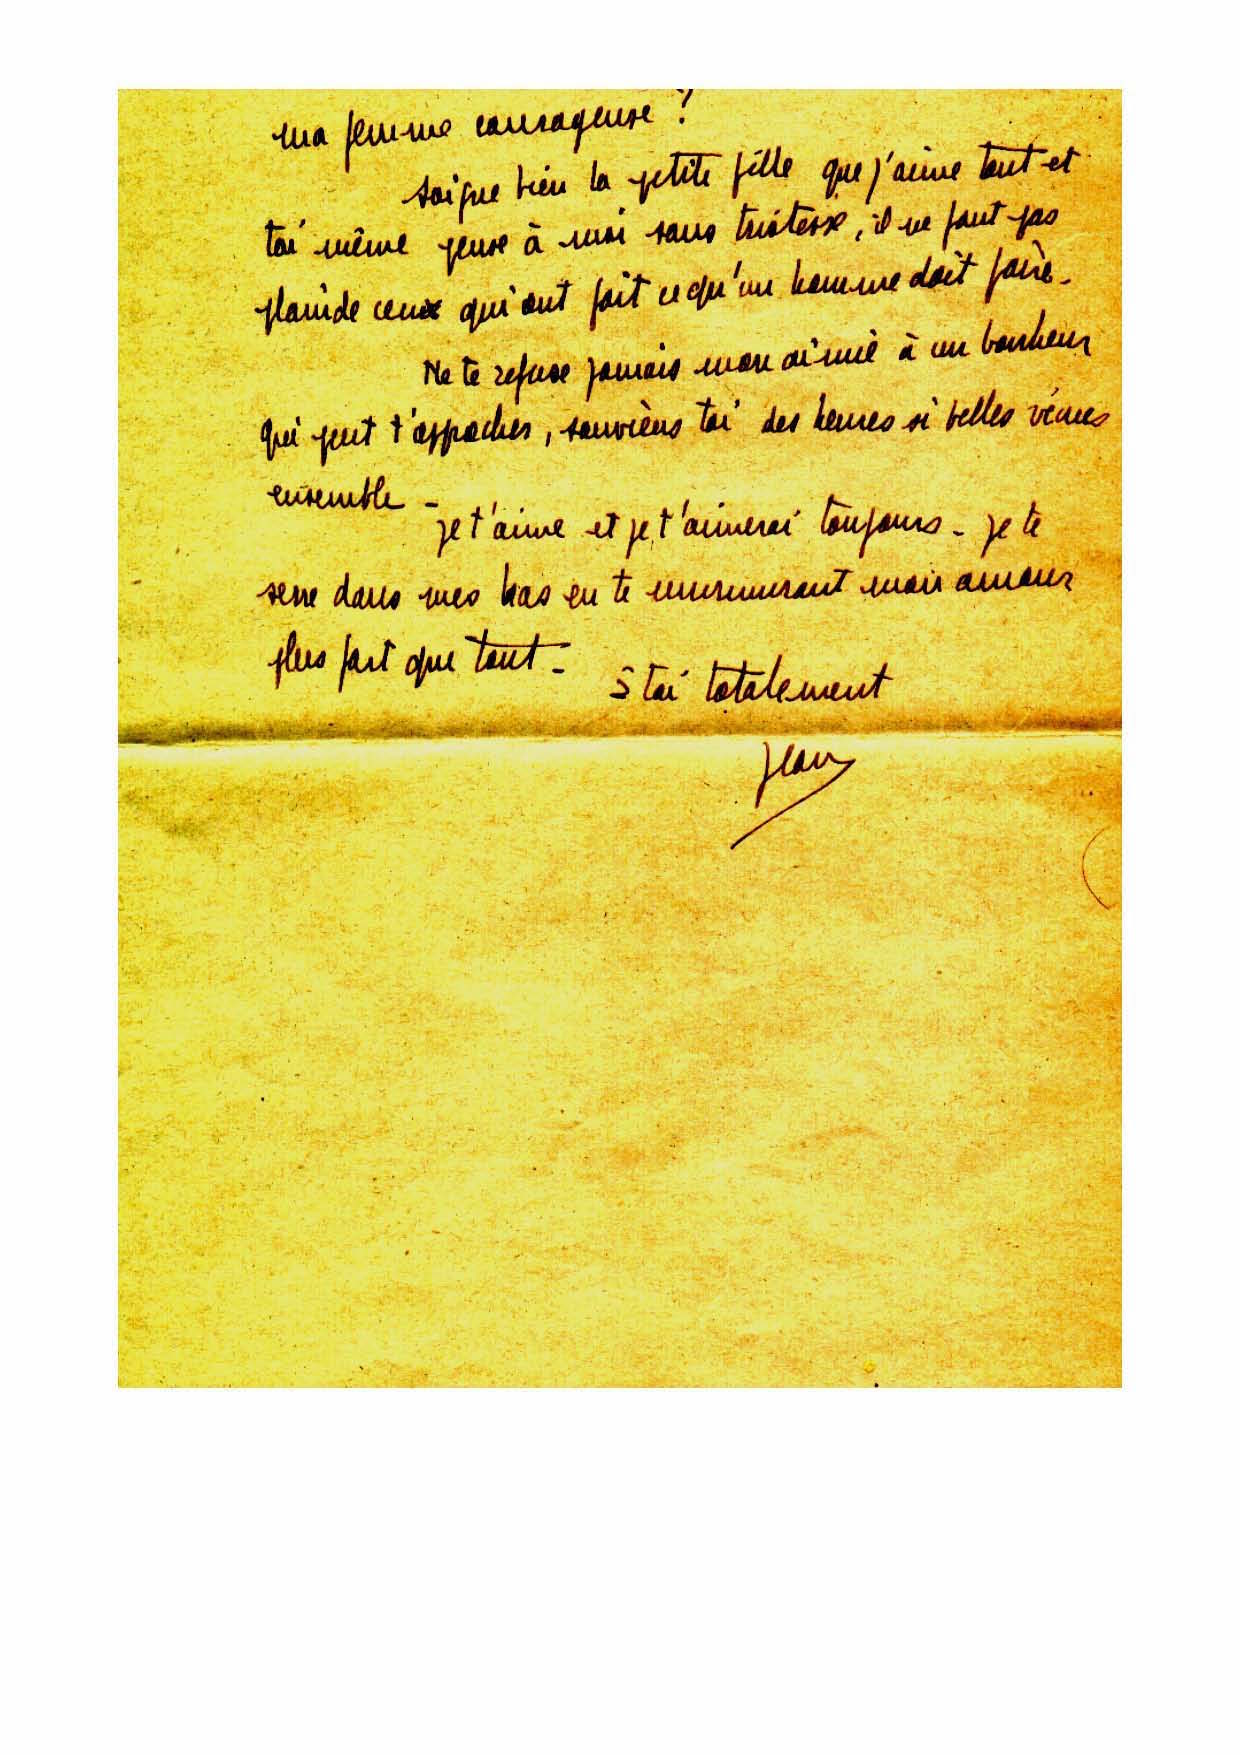 ma femme courageuse ?
Soigne bien la petite fille que j'aime tant et
toi même pense à moi sans tristesse, il ne faut pas
plaindre ceux qui ont fait ce qu'un homme doit faire -
Ne te refuse jamais mon aimée à un bonheur
qui peut t'approcher, souviens toi des heures si belles vécues
ensemble -
Je t'aime et je t'aimerai toujours - Je te
serre dans mes bras en te murmurant mon amour
plus fort que tout -
à toi totalement
Jean